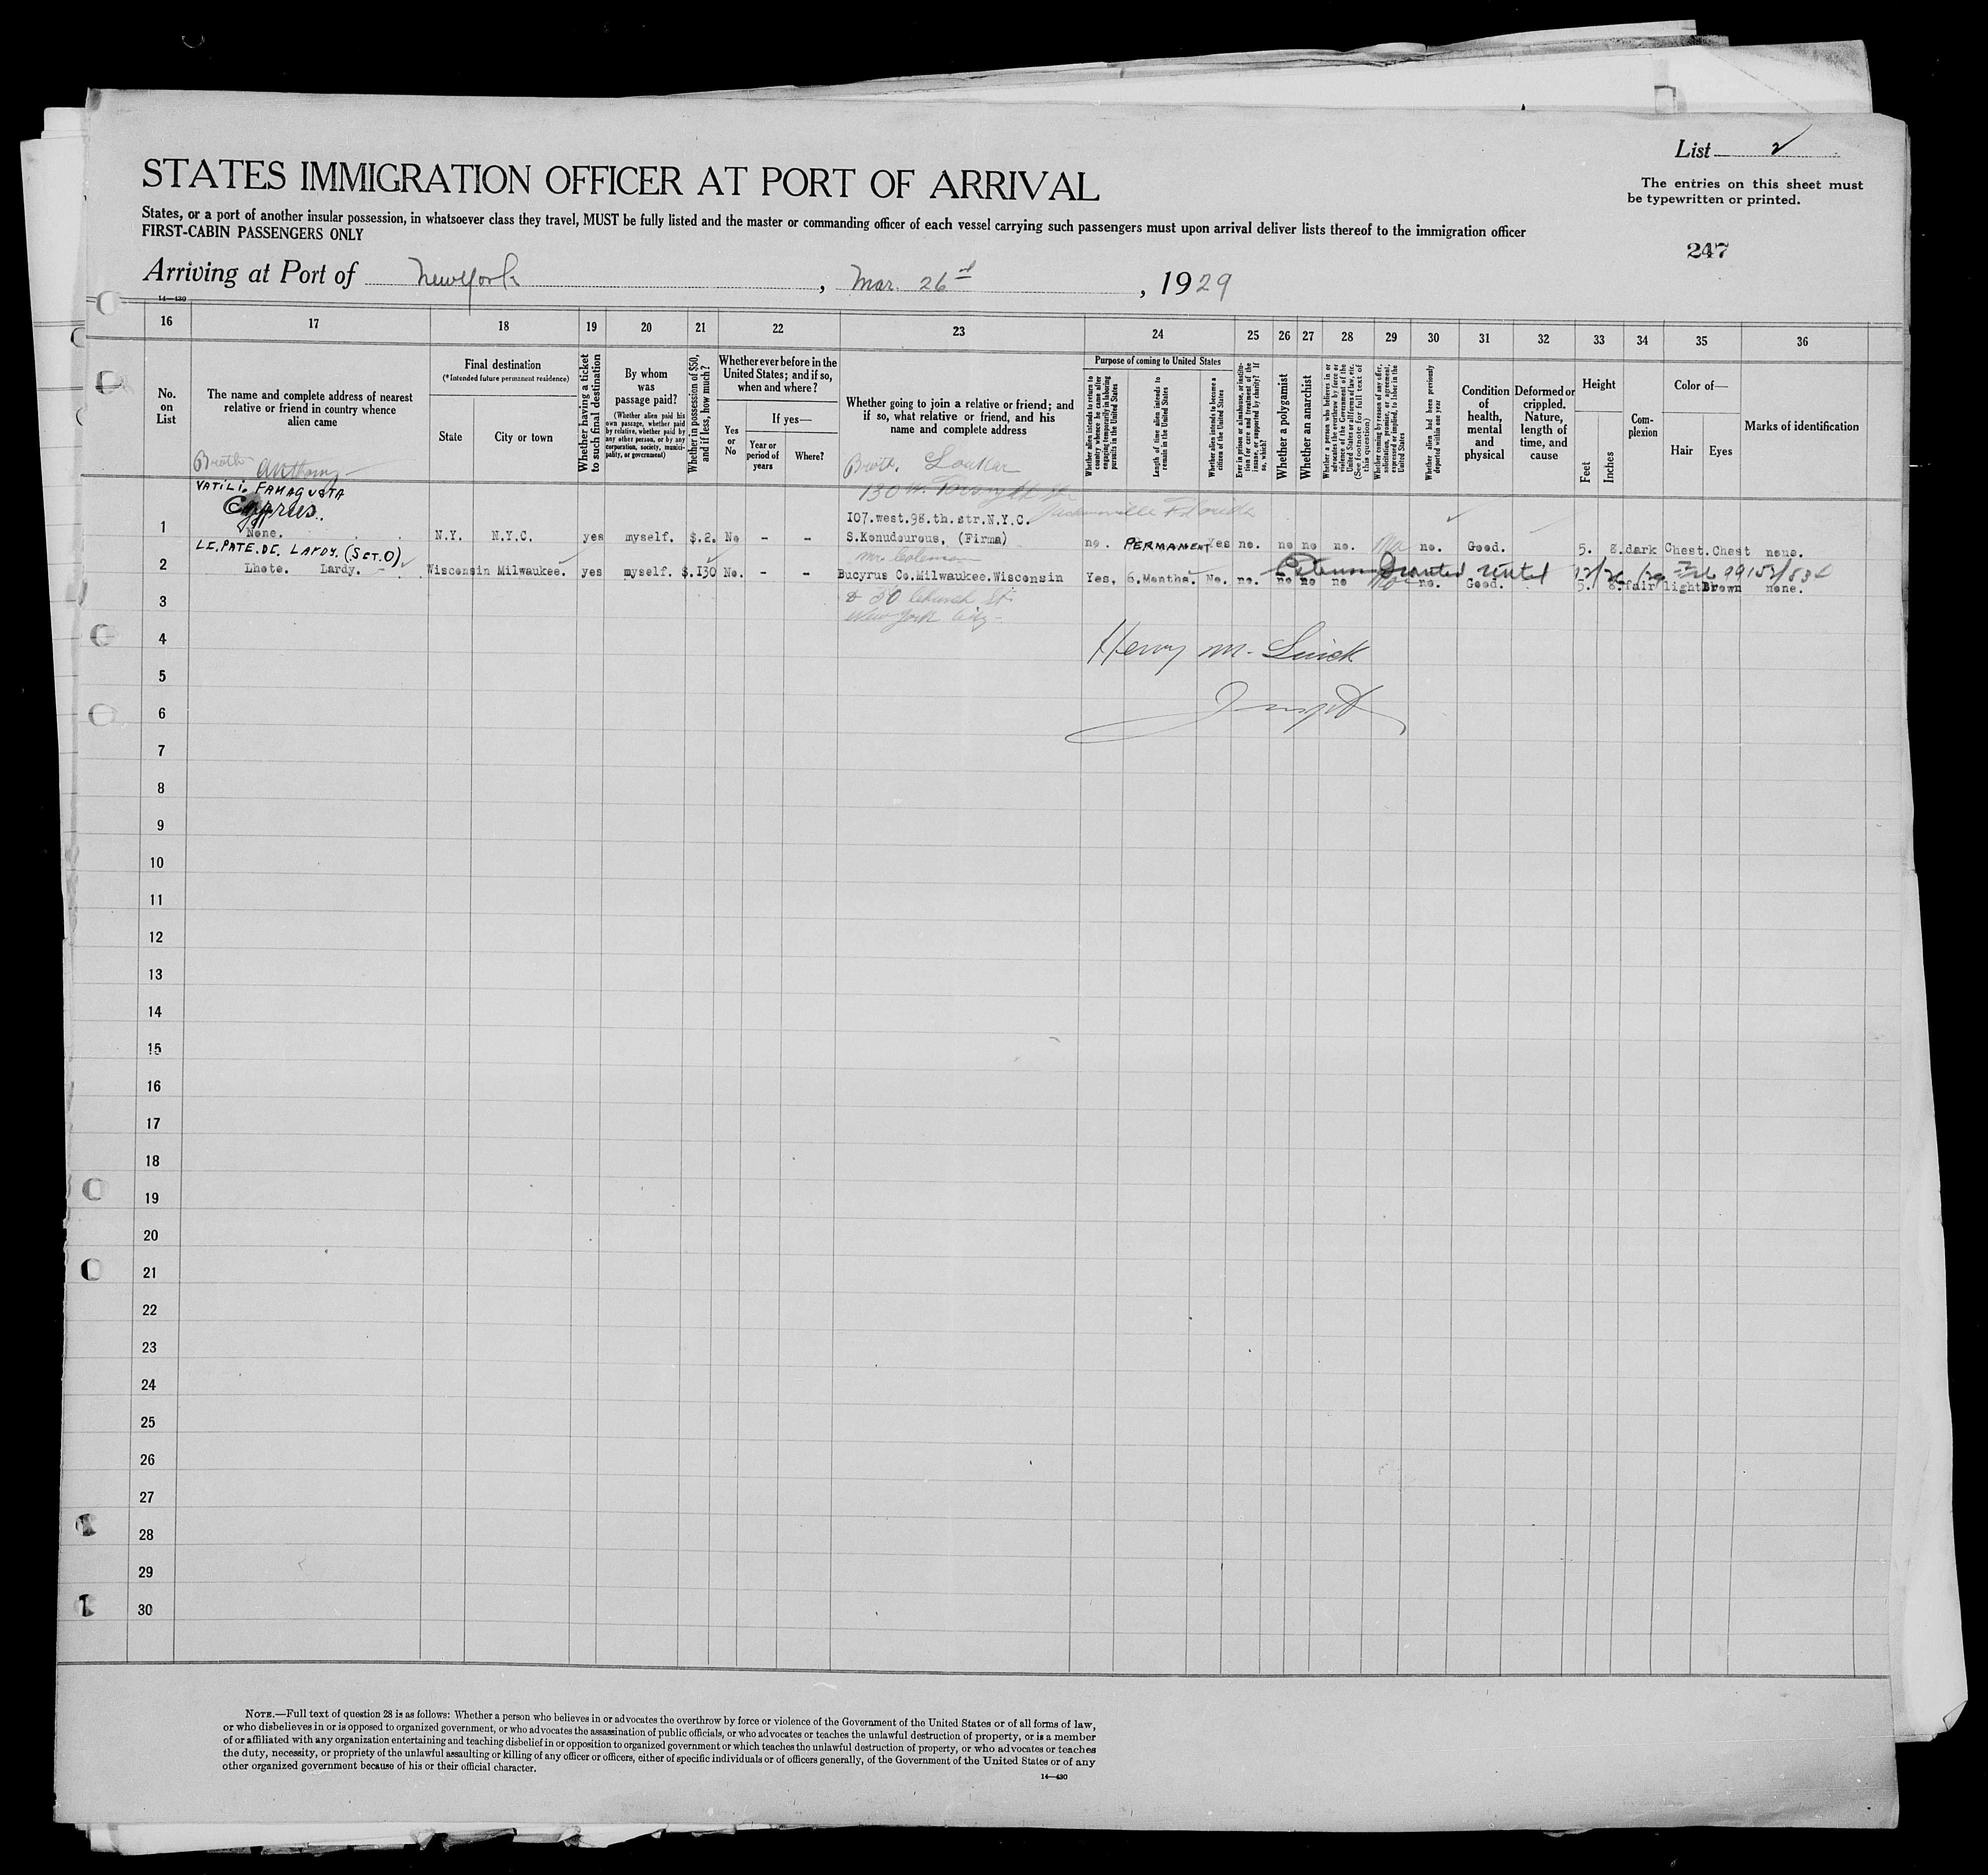 List 2
STATES IMMIGRATION OFFICER AT PORT OF ARRIVAL
The entries on this sheet must
be typewritten or printed.
States, or a port of another insular possession, in whatsoever class they travel, MUST be fully listed and the master or commanding officer of each vessel carrying such passengers must upon arrival deliver lists thereof to the immigration officer
FIRST-CABIN PASSENGERS ONLY
247
Arriving at Port of New York, Mar. 26, 1929
14—430
16 17 18 19 20 21 22 23 24 25 26 27 28 29 30 31 32 33 34 35 36
No. on List
The name and complete address of nearest relative or friend in country whence alien came
Final destination
(*Intended future permanent residence)
State
City or town
Whether having a ticket to such final destination
By whom was passage paid?
(Whether alien paid his own passage, whether paid by relative, whether paid by any other person, or by any corporation, society, municipality, or government)
Whether in possession of $50, and if less, how much?
Whether ever before in the United States; and if so, when and where?
Yes or No
If yes—
Year or period of years
Where?
Whether going to join a relative or friend; and if so, what relative or friend, and his name and complete address
Purpose of coming to United States
Whether alien intends to return to country whence he came after engaging temporarily in laboring pursuits in the United States
Length of time alien intends to remain in the United States
Whether alien intends to become a citizen of the United States
Ever in prison or almshouse, or institution for care and treatment of the insane, or supported by charity? If so, which?
Whether a polygamist
Whether an anarchist
Whether a person who believes in or advocates the overthrow by force or violence of the Government of the United States or all forms of law, etc. (See footnote for full text of this question)
Whether coming by reason of any offer, solicitation, promise, or agreement, expressed or implied, to labor in the United States
Whether alien had been previously deported within one year
Condition of health, mental and physical
Deformed or crippled. Nature, length of time, and cause
Height
Feet
Inches
Complexion
Color of—
Hair
Eyes
Marks of identification
Broth Anthony
VATILI. FAMAGUSTA
Cyprus.
Broth. Loukar
130 W.
Jacksonville Florida
107.west.98.th.str.N.Y.C.
1 None. N.Y. N.Y.C. yes myself. $.2. No - - S.Konudourous, (Firma) no. PERMANENT Yes no. no no no. no. Good. 5. 8. dark Chest. Chest none.
LE.PATE.DE. LARDY. (SET.O)
Mr. Coleman
2 Lhote. Lardy. Wisconsin Milwaukee. yes myself. $.130 No. - - Bucyrus Co.Milwaukee.Wisconsin Yes, 6.Months. No. no. no no no no. Good. 5. 8. fair light Brown none.
Extension Granted until 12/26/29 99152/834
& 30 Church St.
New York City
3
4
Henry M.
5
6
7
8
9
10
11
12
13
14
15
16
17
18
19
20
21
22
23
24
25
26
27
28
29
30
NOTE.—Full text of question 28 is as follows: Whether a person who believes in or advocates the overthrow by force or violence of the Government of the United States or of all forms of law,
or who disbelieves in or is opposed to organized government, or who advocates the assassination of public officials, or who advocates or teaches the unlawful destruction of property, or is a member
of or affiliated with any organization entertaining and teaching disbelief in or opposition to organized government or which teaches the unlawful destruction of property, or who advocates or teaches
the duty, necessity, or propriety of the unlawful assaulting or killing of any officer or officers, either of specific individuals or of officers generally, of the Government of the United States or of any
other organized government because of his or their official character.
14—430